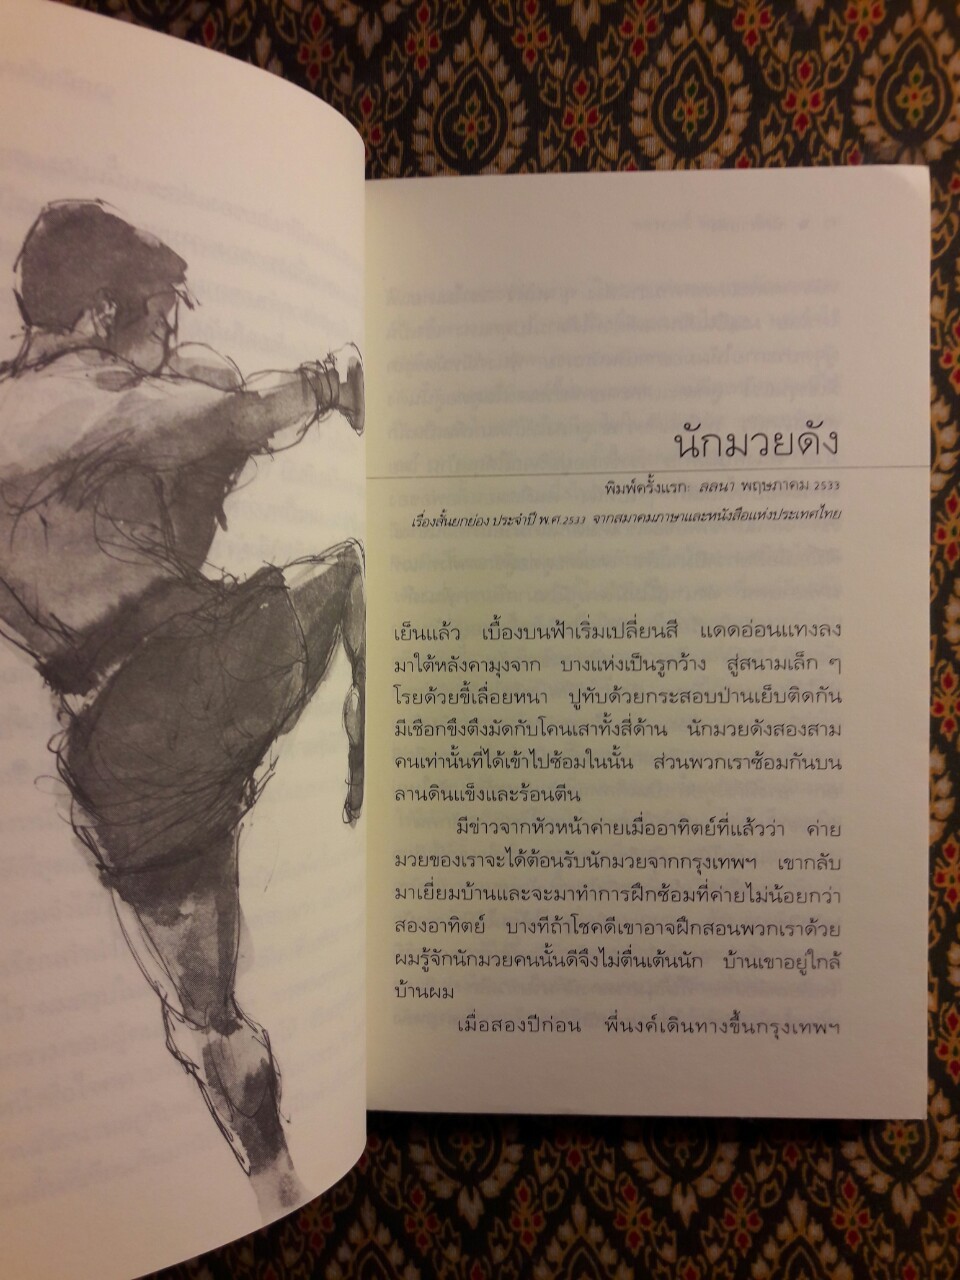 นักมวยดัง
พิมพ์ครั้งแรก: ลลนา พฤษภาคม 2533
เรื่องสั้นยกย่อง ประจำปี พ.ศ.2533 จากสมาคมภาษาและหนังสือแห่งประเทศไทย
เย็นแล้ว เบื้องบนฟ้าเริ่มเปลี่ยนสี แดดอ่อนแทงลง
มาใต้หลังคามุงจาก บางแห่งเป็นรูกว้าง สู่สนามเล็ก ๆ
โรยด้วยขี้เลื่อยหนา ปูทับด้วยกระสอบป่านเย็บติดกัน
มีเชือกขึงตึงมัดกับโคนเสาทั้งสี่ด้าน นักมวยดังสองสาม
คนเท่านั้นที่ได้เข้าไปซ้อมในนั้น ส่วนพวกเราซ้อมกันบน
ลานดินแข็งและร้อนตีน
มีข่าวจากหัวหน้าค่ายเมื่ออาทิตย์ที่แล้วว่า ค่าย
มวยของเราจะได้ต้อนรับนักมวยจากกรุงเทพฯ เขากลับ
มาเยี่ยมบ้านและจะมาทำการฝึกซ้อมที่ค่ายไม่น้อยกว่า
สองอาทิตย์ บางทีถ้าโชคดีเขาอาจฝึกสอนพวกเราด้วย
ผมรู้จักนักมวยคนนั้นดีจึงไม่ตื่นเต้นนัก บ้านเขาอยู่ใกล้
บ้านผม
เมื่อสองปีก่อน พี่นงค์เดินทางขึ้นกรุงเทพฯ